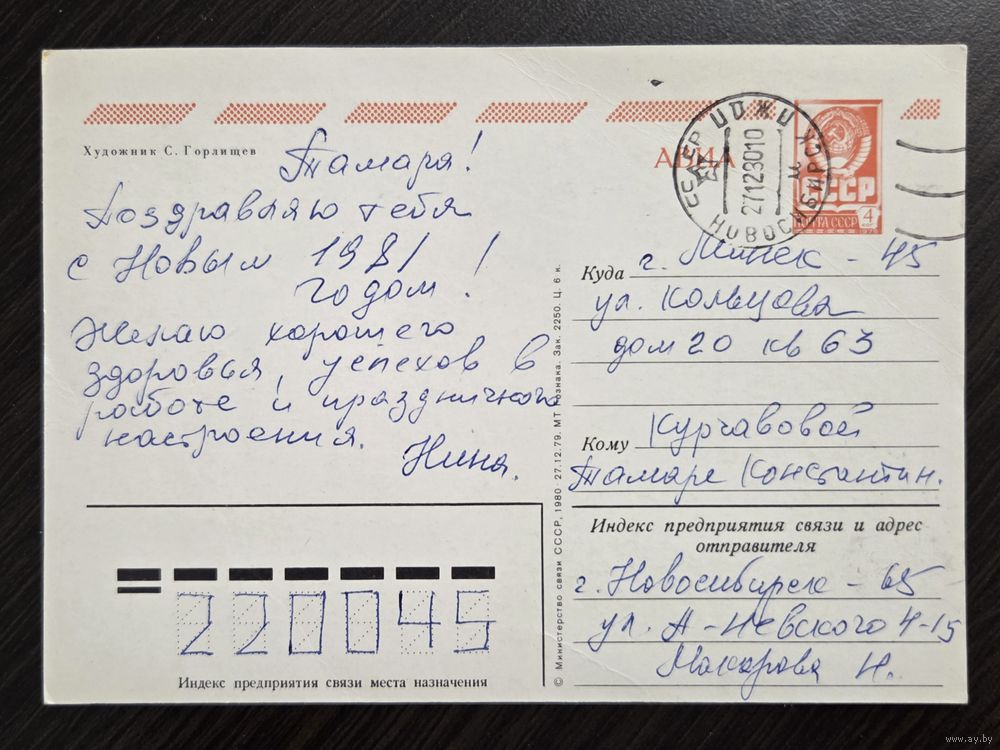 Художник С. Горлищев
Тамара!
Поздравляю тебя
с Новым 1981
годом!
Желаю хорошего
здоровья, успехов в
работе и праздничного
настроения.
Нина.
АВИА
СССР
ПОЧТА СССР
4
2712301 0
НОВОСИБИРСК
Куда г. Минск - 45
ул. Кольцова
дом 20 кв 63
Кому Курчавовой
Тамаре Константин.
Индекс предприятия связи и адрес
отправителя
г. Новосибирск - 65
ул. А-Невского 4-15
Макарова Н.
220045
Индекс предприятия связи места назначения
© Министерство связи СССР, 1980. 27.12.79. МТ Гознака. Зак. 2250. Ц. 6 к.
www.ay.by